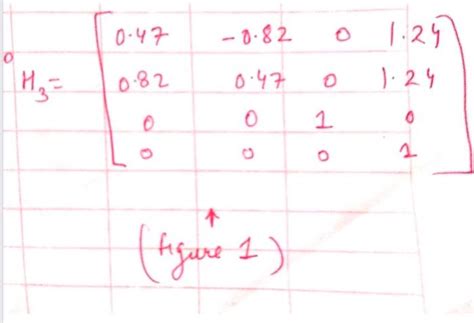 0.47 -0.82 0 1.24
⁰H₃= 0.82 0.47 0 1.24
0 0 1 0
0 0 0 1
↑
(figure 1)